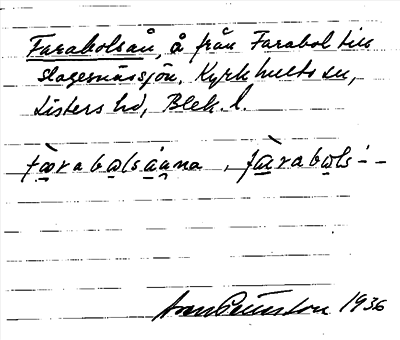 Farabolsån, å från Farabol till
Slagesnässjön, Kyrkhults sn,
Listers hd, Blek. l.
fàrabωlsåana, fàrabωls- -
1936